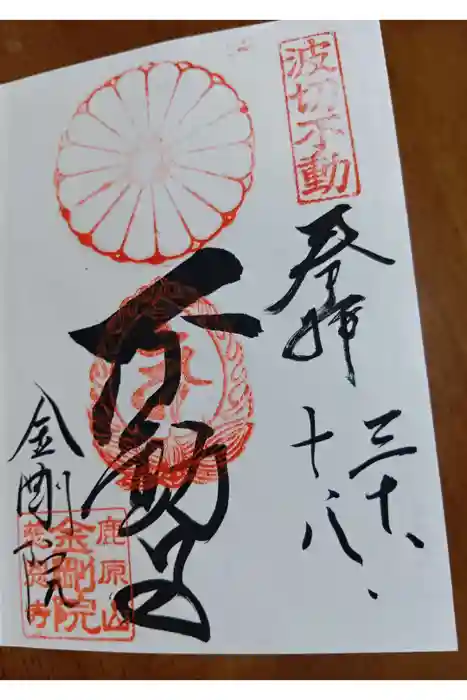 波切不動
奉拝
三十、
十八、
不動尊
金剛院
鹿原山
金剛院
慈恩寺